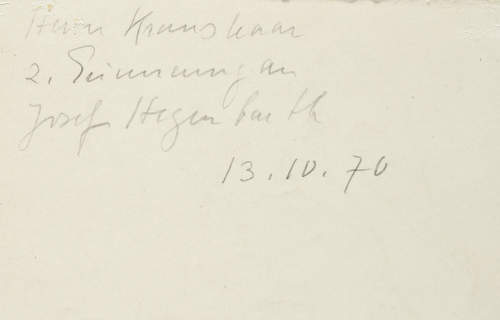 Herrn Kranshaar
z. Erinnerung an
Josef Hegenbarth
13.10.70